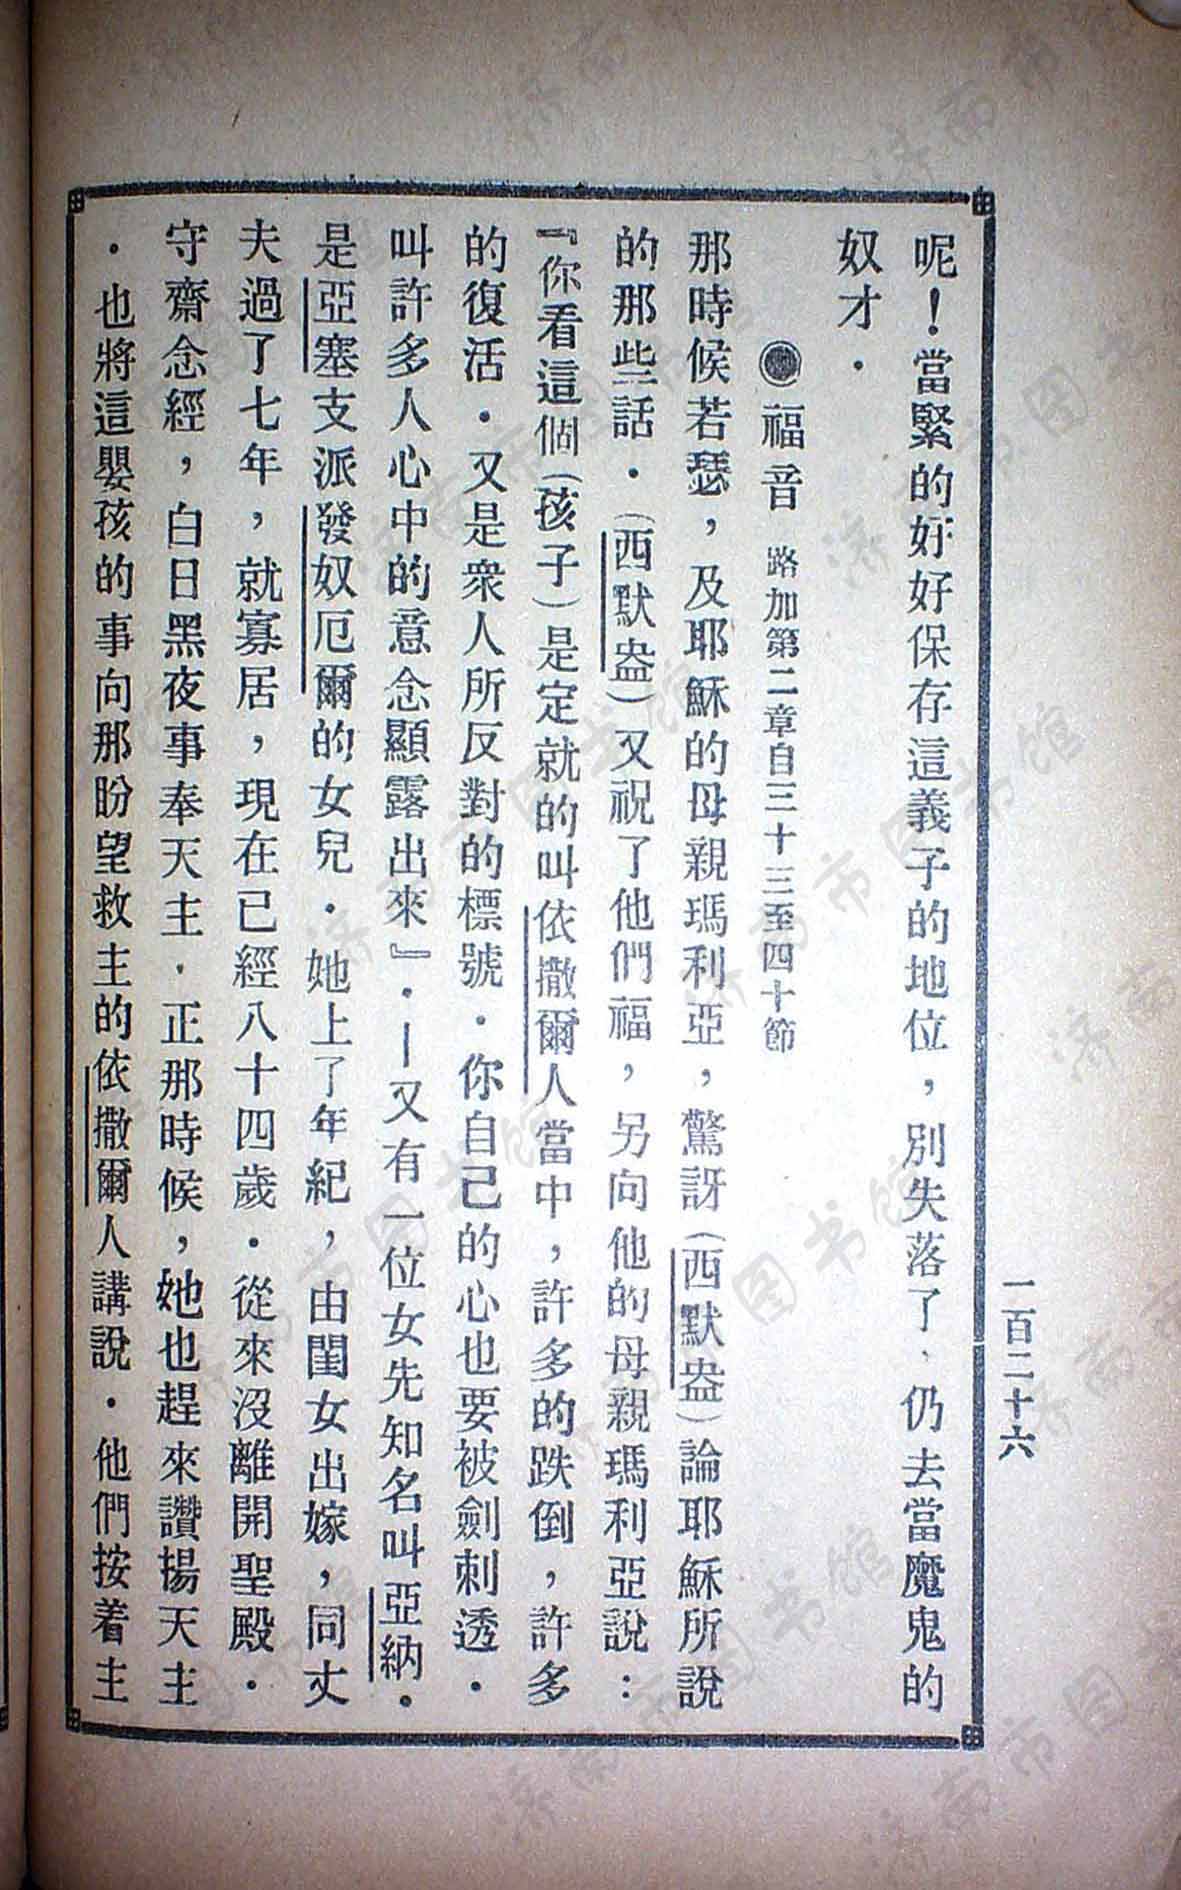 一百二十六
呢！當緊的好好保存這義子的地位，別失落了，仍去當魔鬼的
奴才．
◉福音 路加第二章自三十三至四十節
那時候若瑟，及耶穌的母親瑪利亞，驚訝（西默盎）論耶穌所說
的那些話．（西默盎）又祝了他們福，另向他的母親瑪利亞說：
『你看這個（孩子）是定就的叫依撒爾人當中，許多的跌倒，許多
的復活．又是衆人所反對的標號．你自己的心也要被劍刺透．
叫許多人心中的意念顯露出來』．—又有一位女先知名叫亞納．
是亞塞支派發奴厄爾的女兒．她上了年紀，由閨女出嫁，同丈
夫過了七年，就寡居，現在已經八十四歲．從來沒離開聖殿．
守齋念經，白日黑夜事奉天主．正那時候，她也趕來讚揚天主
．也將這嬰孩的事向那盼望救主的依撒爾人講說．他們按着主
济南市图书馆